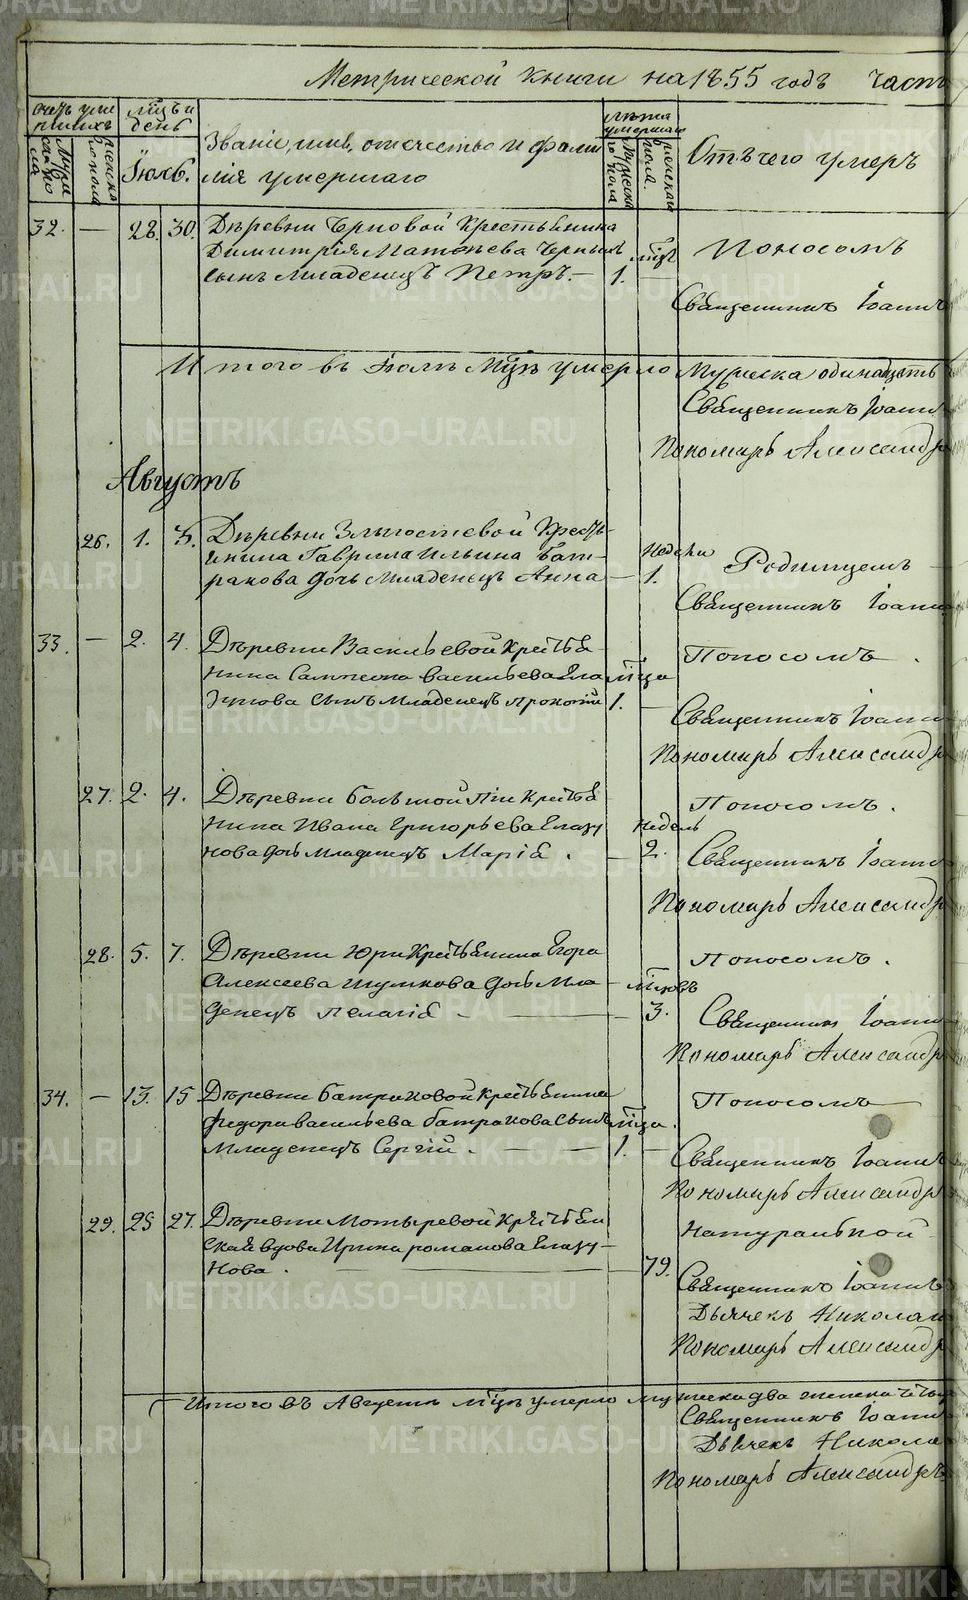 Метрической книги на 1855 годъ часть
Счетъ умершихъ
Мужеска пола
Женска пола
Мѣсяцъ и день
Іюль.
Званіе, имя, отчество и фамилія умершаго
Лѣта умершаго
Мужеска пола
Женскаго пола.
Отъ чего умеръ
32. — 28. 30. Деревни Черновой Крестьянина
Димитрія Матѳѣева Черныхъ мѣсц
сынъ младенецъ Петръ. — 1.
Поносомъ
Священникъ Іоаннъ
Итого въ Іюлѣ мцѣ умерло Мужеска одинадцать
Священникъ Іоаннъ
Пономарь Александръ
Августъ
26. 1. 3. Деревни Крестьянина Гаврила Ильина Батракова дочь Младенецъ Анна — Недели 1.
Родимцемъ
Священникъ Іоаннъ
33. — 2. 4. Деревни Васильевой Крестья
нина Сампсона Васильева Гла мѣца
зунова сынъ младенецъ Прокопій 1. —
Поносомъ.
Священникъ Іоаннъ
Пономарь Александръ
27. 2. 4. Деревни Большой Крестья
нина Ивана Григорьева Глазу Недель
нова дочь младенецъ Марія. — 2.
Поносомъ.
Священникъ Іоаннъ
Пономарь Александръ
28. 5. 7. Деревни Юри Крестьянина Егора
Алексеева Шумкова дочь Мла — мѣсцовъ
денецъ Пелагія — 3.
Поносомъ.
Священникъ Іоаннъ
Пономарь Александръ
34. — 13. 15. Деревни Батраковой Крестьянина
Федора Васильева Батракова сынъ мѣсца.
Младенецъ Сергій. — — 1. —
Поносомъ
Священникъ Іоаннъ
Пономарь Александръ
29. 25 27. Деревни Мотыревой Крестьян
ская вдова Ирина Романова Глазу—
нова. — 79.
Натуральной
Священникъ Іоаннъ
Дьячекъ Николай
Пономарь Александръ
Итого въ Августѣ мцѣ умерло мужеска два женска четыре
Священникъ Іоаннъ
Дьячекъ Николай
Пономарь Александръ
METRIKI.GASO-URAL.RU